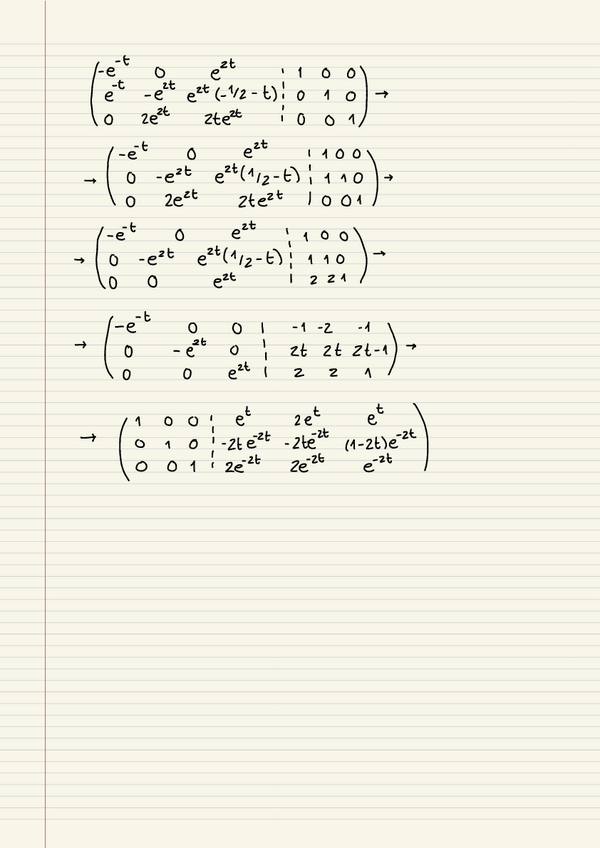 -e^{-t} 0 e^{2t} ¦ 1 0 0
e^{-t} -e^{2t} e^{2t}(-1/2 - t) ¦ 0 1 0 →
0 2e^{2t} 2te^{2t} ¦ 0 0 1
-e^{-t} 0 e^{2t} ¦ 1 0 0
→ 0 -e^{2t} e^{2t}(1/2 - t) ¦ 1 1 0 →
0 2e^{2t} 2te^{2t} ¦ 0 0 1
-e^{-t} 0 e^{2t} ¦ 1 0 0
→ 0 -e^{2t} e^{2t}(1/2 - t) ¦ 1 1 0 →
0 0 e^{2t} ¦ 2 2 1
-e^{-t} 0 0 ¦ -1 -2 -1
→ 0 -e^{2t} 0 ¦ 2t 2t 2t-1 →
0 0 e^{2t} ¦ 2 2 1
1 0 0 ¦ e^{t} 2e^{t} e^{t}
→ 0 1 0 ¦ -2te^{-2t} -2te^{-2t} (1-2t)e^{-2t}
0 0 1 ¦ 2e^{-2t} 2e^{-2t} e^{-2t}